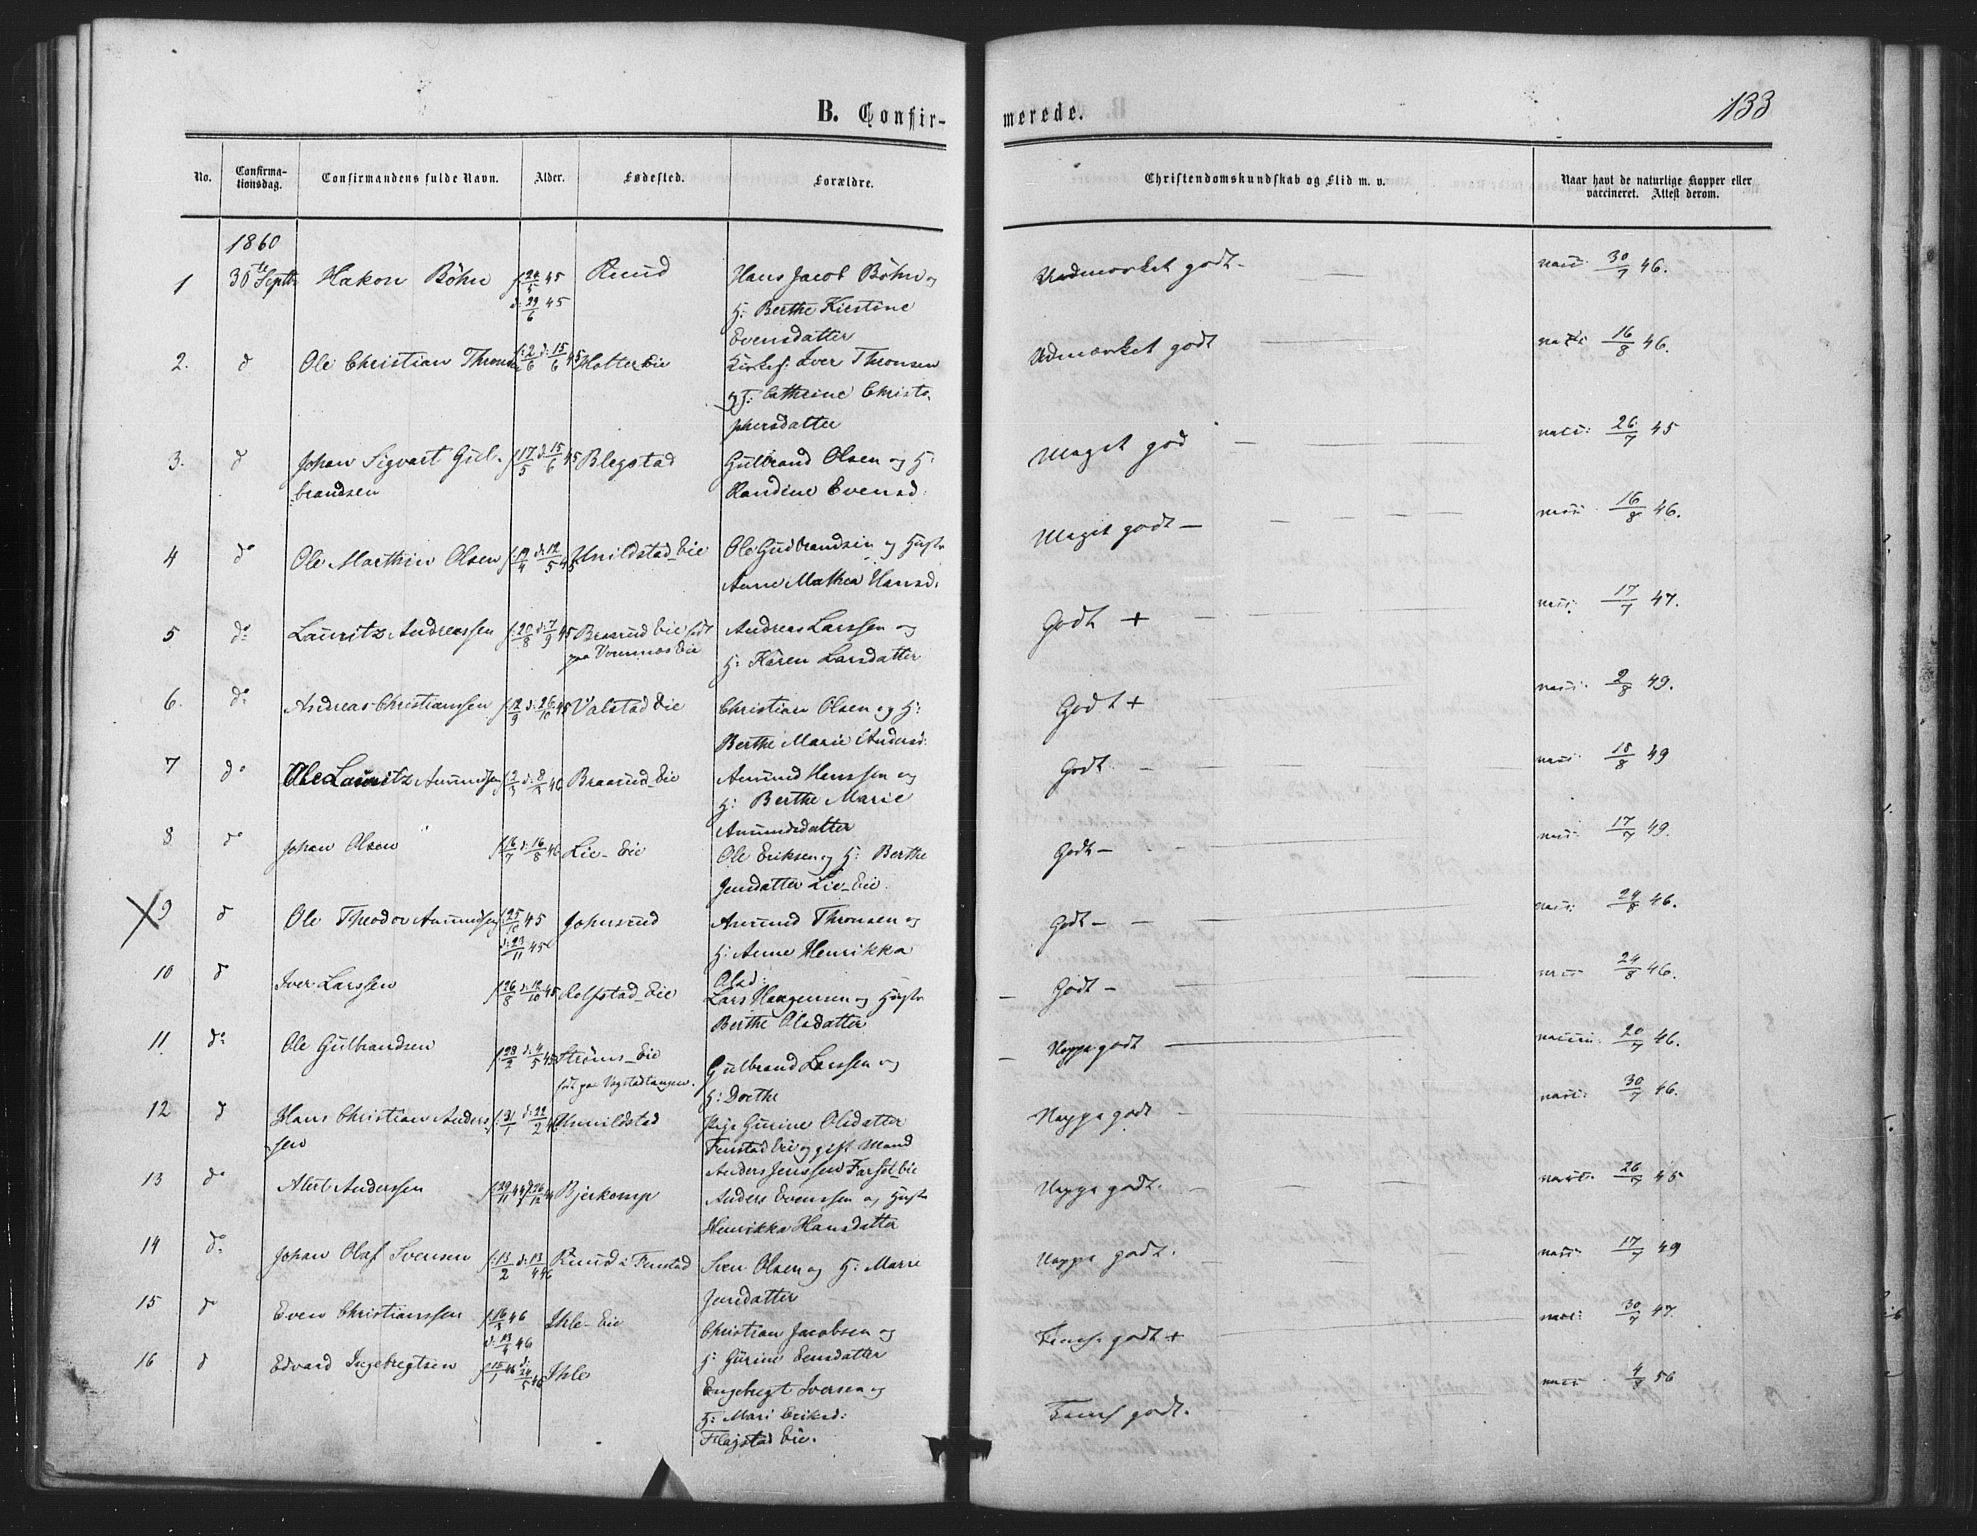 133
B. Confir- merede.
No. Confirma- tionsdag. Confirmandens fulde Navn. Alder. Fødested. Forældre. Christendomskundskab og Flid m. v. Naar havt de naturlige Kopper eller vaccineret. Attest derom.
1860
1 30te Septbr Hakon Bøhn f 24/5 45 Ruud Hans Jacob Bøhn og Udmærket godt - vacc: 30/7 46.
d: 29/6 45 H: Berthe Kirstine
Evensdatter
2. d Ole Christian Thronsen f: 2/6 d: 15/6 45 Holter Eie Kirkes: Iver Thronsen Udmærket godt vacc: 16/8 46.
og H: Cathrine Christo-
phersdatter
3. d Johan Sigvart Gul- f 17/5 d: 15/6 45 Blegstad Gulbrand Olsen og H: Meget god vacc: 26/7 45
brandsen Randine Evensd:
4 do Ole Marthin Olsen f: 19/4 d: 12/5 45 Hvildstad Eie Ole Gudbrandsen og Hustr Meget godt - vacc: 16/8 46.
Anne Mathea Hansd:
5 do Lauritz Andreassen f: 20/8 d: 7/9 45 Braarud Eie født Andreas Larssen og Godt + vacc: 17/7 47.
paa Vormnæs Eie H: Karen Larsdatter
6. do Andreas Christianssen f 12/9 d: 26/10 45 Valstad Eie Christian Olsen og H: Godt + vacc: 2/8 49.
Berthe Marie Andersd:
7 do Ole Lauritz Amundsen Braarud Eie Amund Hanssen og Godt. vacc: 18/8 49
H: Berthe Marie
Amundsdatter
8 do Johan Olsen f 16/7 d: 16/8 46 Lie - Eie Ole Eriksen og H: Berthe Godt - vacc: 17/7 49.
Jensdatter Lie - Eie.
9 d Ole Theodor Amundsen f 25/10 45 Johnsrud Amund Thronsen og Godt - vacc: 24/8 46.
d: 23/11 45 H: Anne Henrikka
Olsd:
10 d Iver Larssen f 26/8 d: 12/10 45 Rolfstad Eie Lars Haagensen og Hustr Godt - vacc: 24/8 46.
Berthe Olsdatter
11. do Ole Gulbrandsen f 23/2 d: 4/5 45 Strøms - Eie Gulbrand Larssen og Noppe godt vacc: 20/7 46.
født paa Vogstadtangen. H: Dorthe
12 d Hans Christian Anders- f: 31/1 d: 22/2 46 Hvildstad Pige Gurine Olsdatter Noppe godt vacc: 30/7 46.
sen Finstad Eie og gift Mand
Anders Jenssen Farset Eie
13 do Albert Anderssen f 29/11 44 d: 26/12 44 Bjerkomp Anders Evenssen og Hustr Noppe godt. vacc: 26/7 45
Henrikka Hansdatter
14 do Johan Olaf Svensen f: 13/2 d: 13/4 46 Ruud i Finstad Sven Olsen og H: Marie Noppe godt. vacc: 17/7 49
Jensdatter
15 d Even Christianssen f: 16/3 46 Ihle - Eie Christian Jacobsen og godt + vacc: 30/7 47.
d: 13/4 46 H: Gurine Eensdatter
16 d Edvard Ingebregtsen f 15/1 46 d: 24/5 46 Ihle Engebregt Iversen og godt. vacc: 4/8 56
H: Mari Eriksd:
Flagstad Eie.